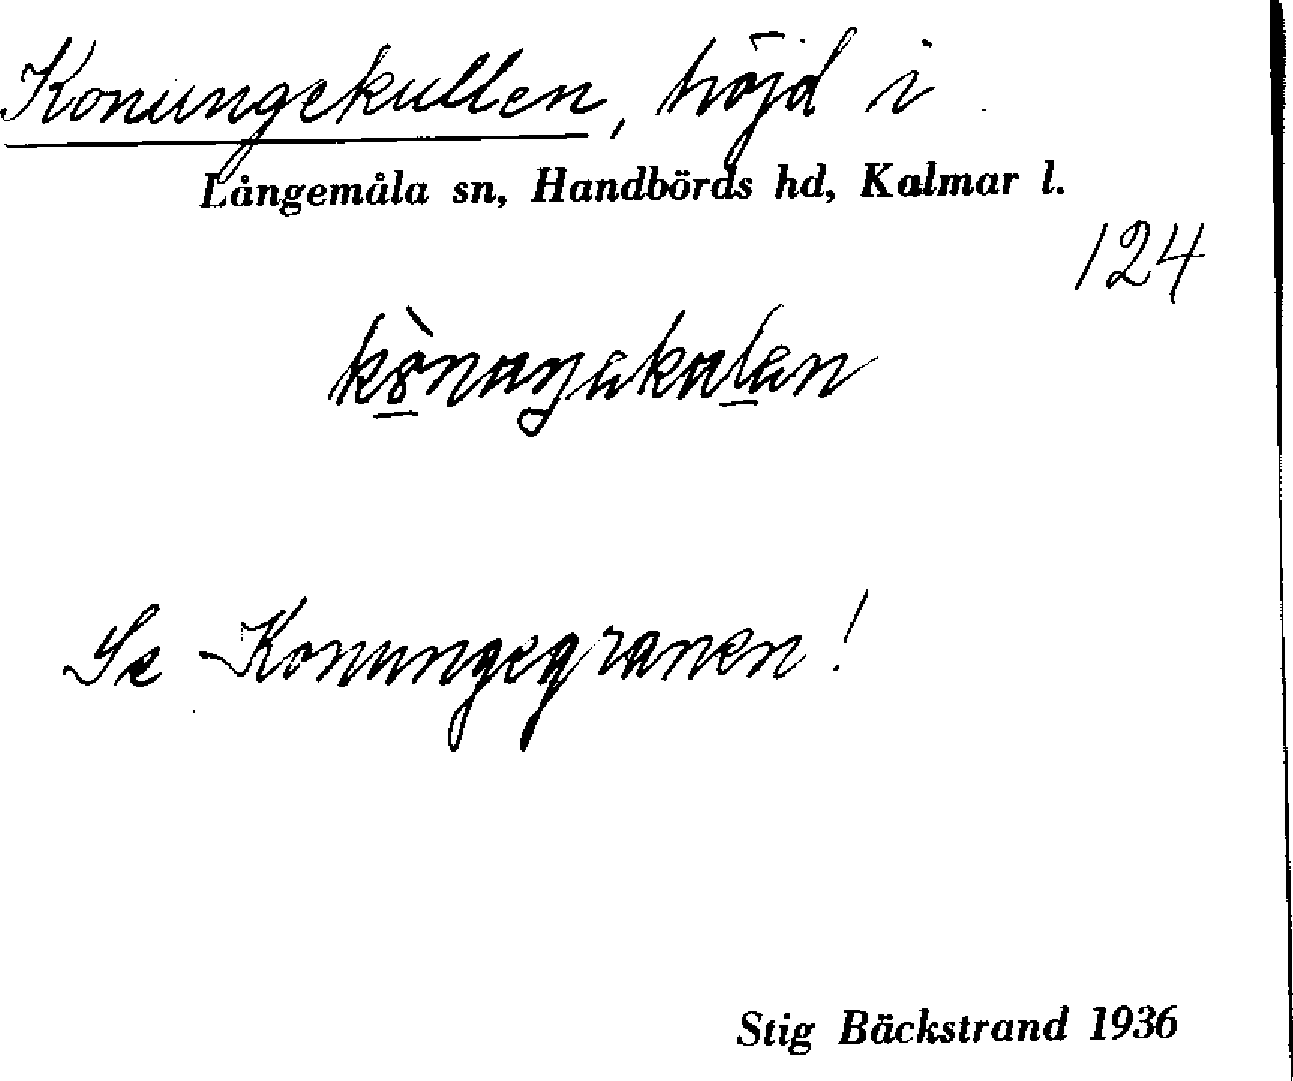 Konungekullen, höjd i
Långemåla sn, Handbörds hd, Kalmar l.
124
Se Konungegranen!
Stig Bäckstrand 1936